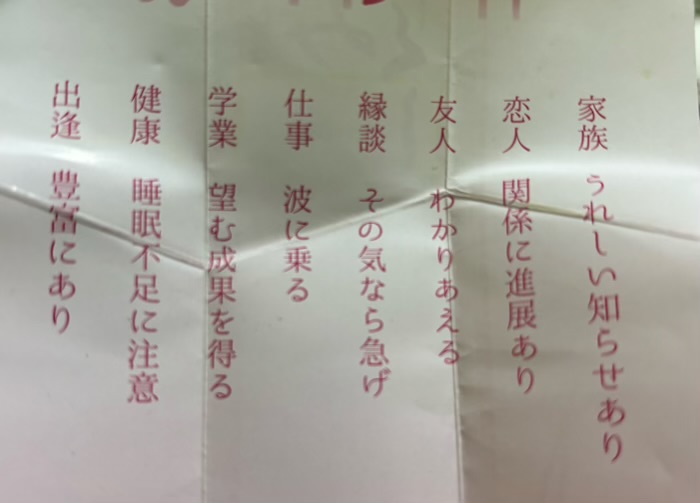 家族 うれしい知らせあり
恋人 関係に進展あり
友人 わかりあえる
縁談 その気なら急げ
仕事 波に乗る
学業 望む成果を得る
健康 睡眠不足に注意
出逢 豊富にあり